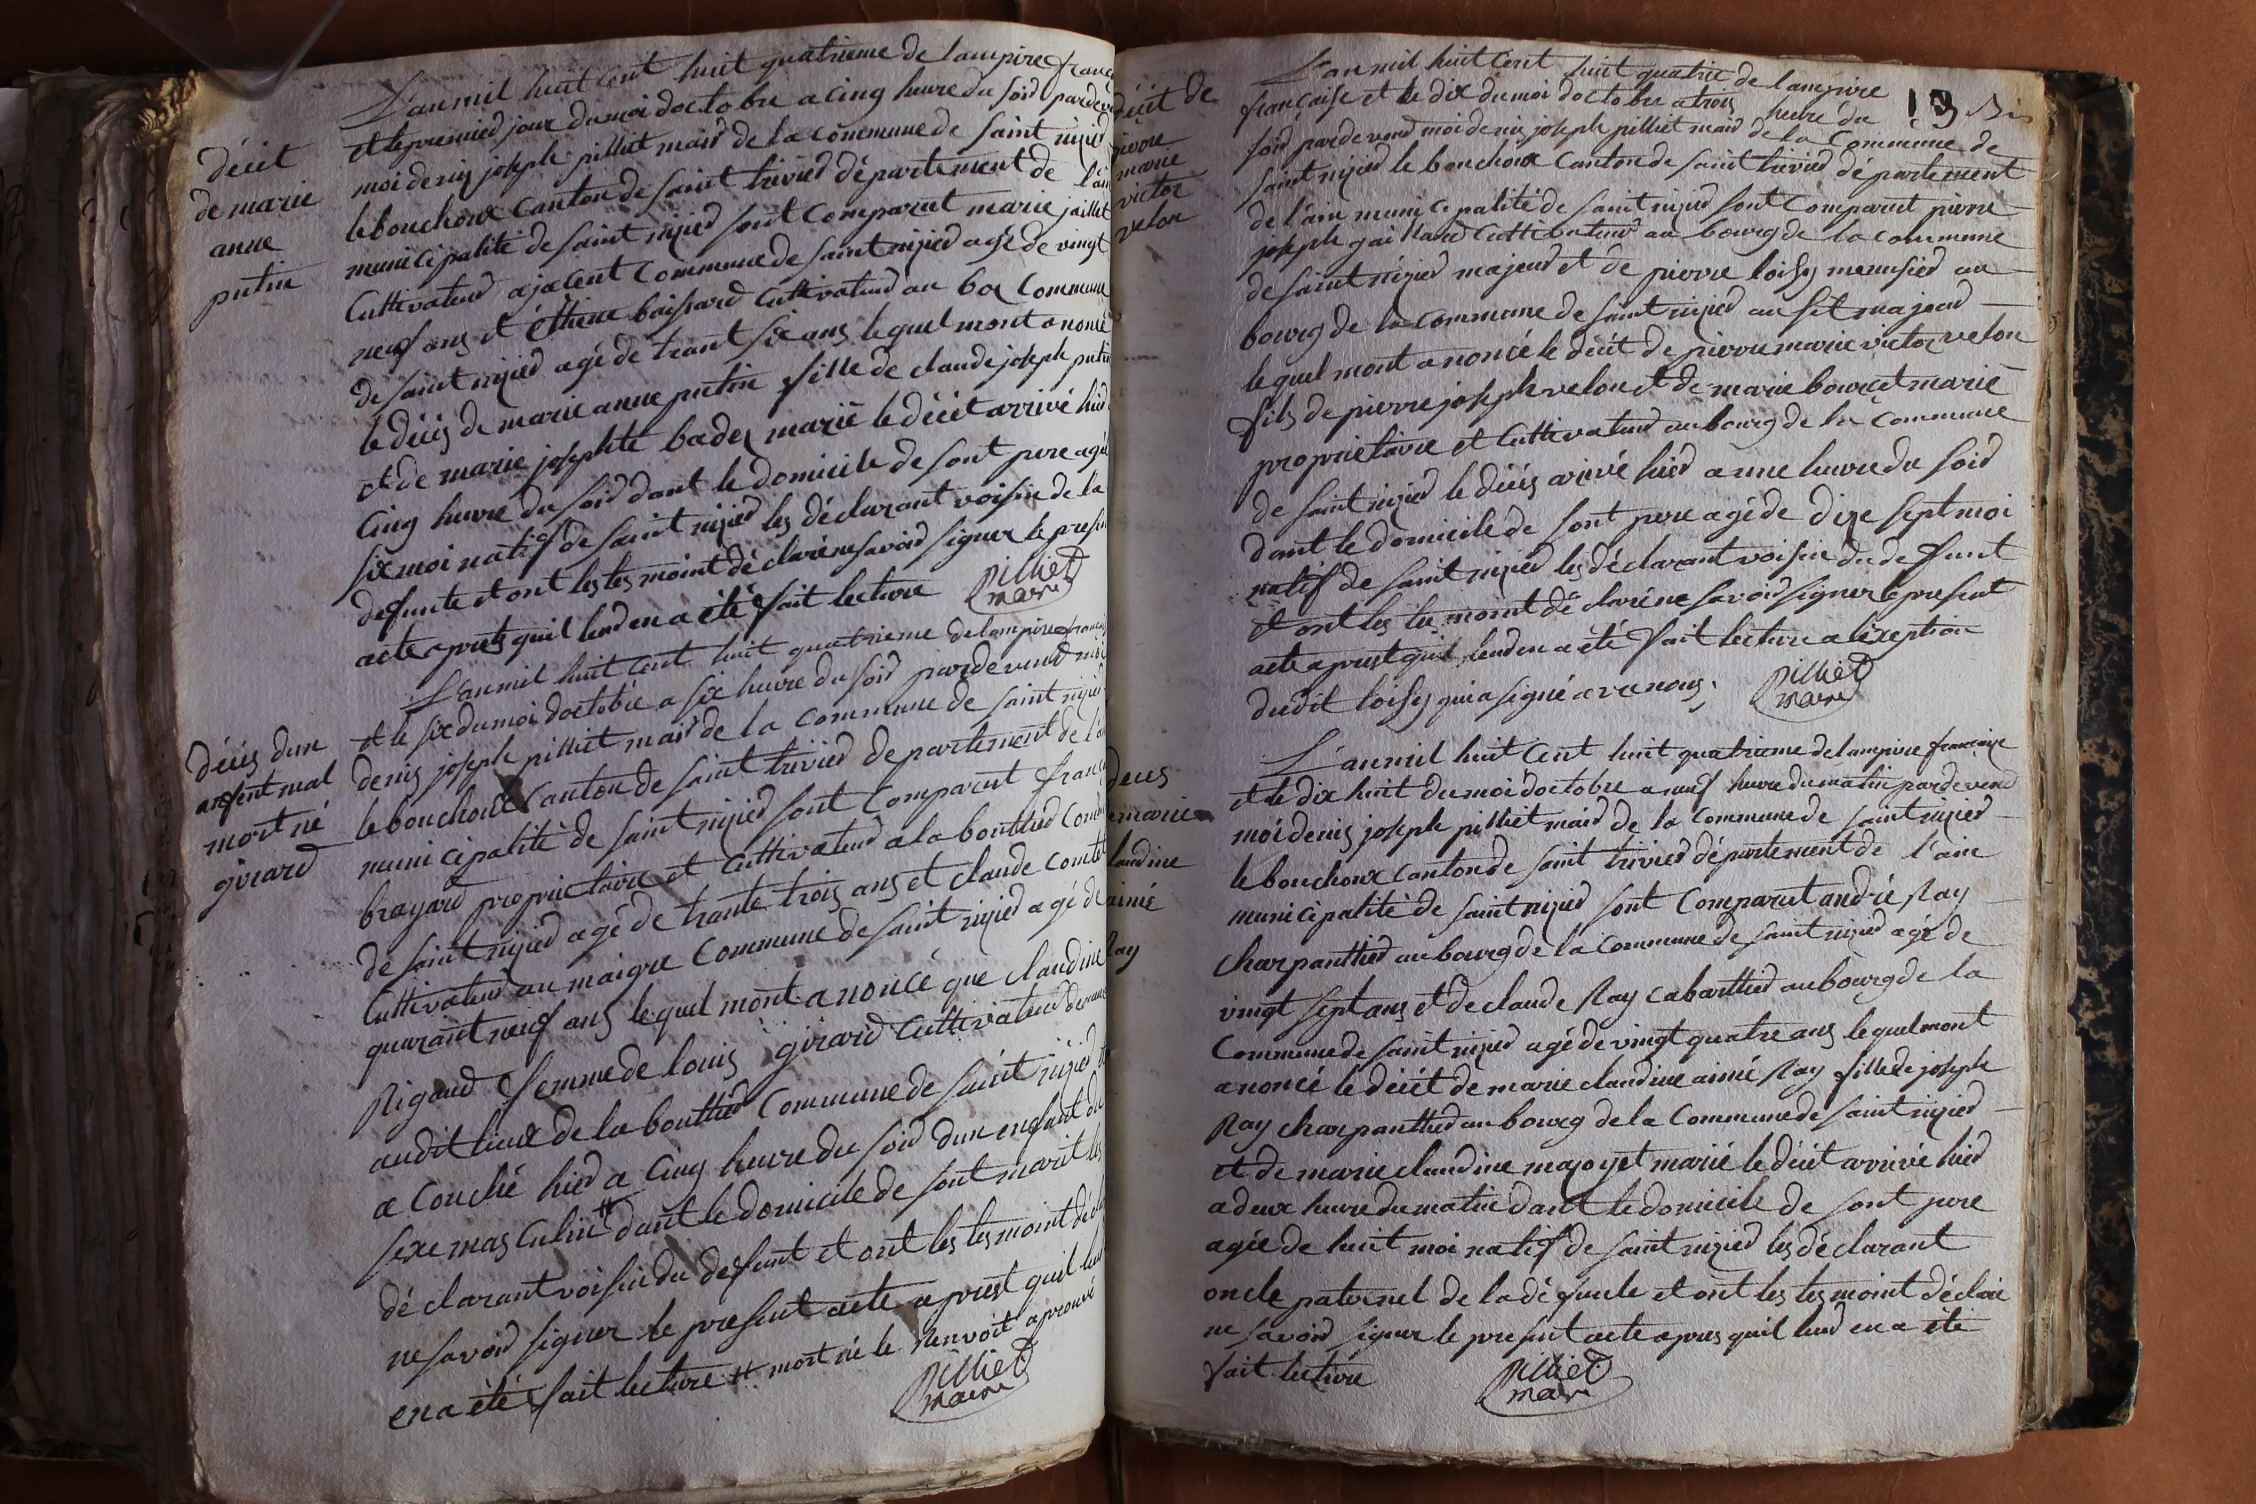 décit
de marie
anne
putin
L'an mil huit cent huit quatrieme de lampire franç
et le premied jour du moi doctobre a cinq heure du soid pardev
moi denis joseph pilliet maid de la commune de saint nizied
le bouchoux canton de saint trivied département de l'ain
municipalité de saint nizied sont comparut marie jaillet
cultivateud a jacent commune de saint nizied agé de vingt
neuf ans et éttiene boissard cultivateud au commune
de saint nizied agé de trant six ans lequel mont anoncé
le décès de marie anne putin fille de claude joseph putin
et de marie josephte badez marié le décét arrivé hied
cinq heure du soid dant le domicile de sont pere agé
six moi natif de saint nizied les déclarant voisin de la
defunte et ont les tesmoint déclaré ne savoid signer le presen
acte aprets quil leud en a été fait lecture
pilliet
maire
décès dun
anfent mal
mort né
girard
L'an mil huit cent huit quatrieme de lampire franç
et le six du moi doctobre a six heure du soid pardevend moi
denis joseph pilliet maid de la commune de saint nizied
le bouchoux canton de saint trivied departement de l'a
municipalité de saint nizied sont comparut franç
brayard proprietaire et cultivateud a la bouttied com
de saint nizied agé de trante trois ans et claude comtet
cultivateud au maigre commune de saint nizied agé de
quarant neuf ans lequel mont anoncé que claudine
Rigaud femme de louis girard cultivateud
audit lieux de la bouttied commune de saint nizied
a couché hied a cinq heure du soid dun enfant du
sexe masculin # dant le domicile de sont marit les
déclarant voisin du deffunt et ont les tesmoint décl
ne savoid signer le present acte aprest quil leud
en a été fait lecture # mort né le renvoit aprouvé
pilliet
maire
13 Bis
décit de
pierre
marie
victor
velon
L'an mil huit cent huit quatrie de lampire
française et le dix du moi doctobre a trois heure du
soid pardevend moi denis joseph pilliet maid de la commune de
saint nizied le bouchoux canton de saint trivied département
de l'ain municipalité de saint nizied sont comparut pierre
joseph gaillard cultivateud au bourg de la commune
de saint nizied majeud et de pierre loisy menusied au
bourg de la commune de saint nizied ausit majeud
lequel mont anoncé le décit de pierre marie victor velon
fils de pierre joseph velon et de marie bourcet marié
proprietaire et cultivateud au bourg de la commune
de saint nizied le décés arivé hied a une heure du soid
dant le domicile de sont pere agé de dixe sept moi
natif de saint nizied les déclarant voisin du defunt
et ont les tesmoint déclaré ne savoid signer le present
acte aprest quil leud en a été fait lecture a lexeption
dudit loisy qui a signé avec nous
pilliet
maire
deces
marie
claudine
aimé
Ray
L'an mil huit cent huit quatrieme de lampire française
et le dix huit du moi doctobre a neuf heure du matin pardevend
moi denis joseph pilliet maid de la commune de saint nizied
le bouchoux canton de saint trivied département de l'ain
municipalité de saint nizied sont comparut andré Ray
charpanttied au bourg de la commune de saint nizied agé de
vingt sept ans et de claude Ray cabarttied au bourg de la
commune de saint nizied agé de vingt quatre ans lequel mont
anoncé le décét de marie claudine aimé Ray fille de joseph
Ray charpanttied au bourg de la commune de saint nizied
et de marie claudine majoyet marié le décét arrivé hied
a deux heure du matin dant le domicile de sont pere
agée de huit moi natif de saint nizied les déclarant
oncle paternel de la défunte et ont les tesmoint déclaré
ne savoid signer le present acte apres quil leud en a été
fait lecture
pilliet
maire